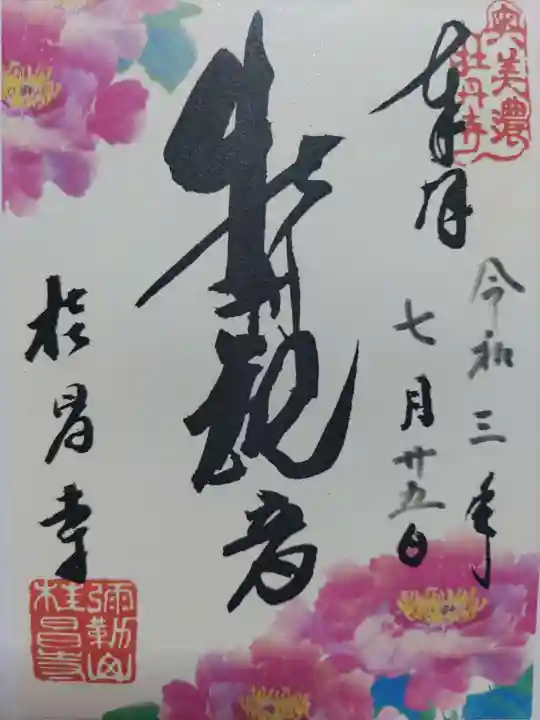 奥美濃
牡丹寺
奉拝
令和三年
七月廿五日
牡丹観音
桂昌寺
彌勒山
桂昌寺